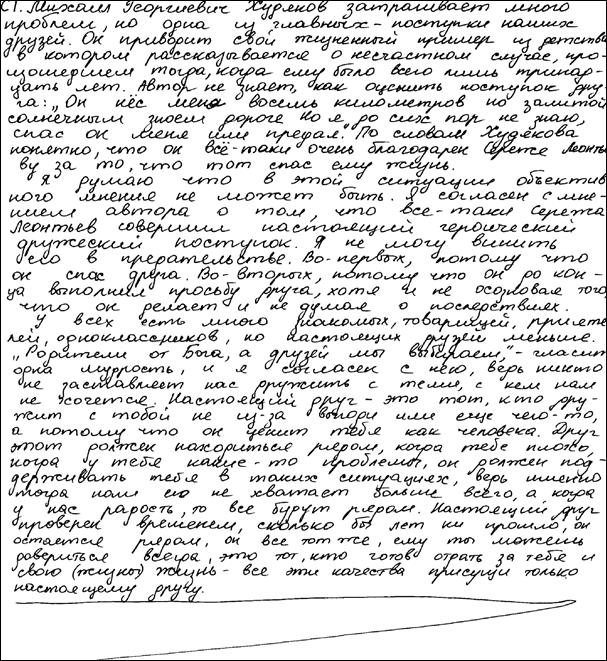 С1. Михаил Георгиевич Худяков затрагивает много
проблем, но одна из главных - поступки наших
друзей. Он приводит свой жизненный пример из детства
в котором рассказывается о несчастном случае, про-
изошедшем тогда, когда ему было всего лишь тринад-
цать лет. Автор не знает, как оценить поступок дру-
га: „Он нёс меня восемь километров по залитой
солнечным зноем дороге. Но я до сих пор не знаю,
спас он меня или предал." По словам Худякова
понятно, что он всё-таки очень благодарен Сереже Леонтье-
ву за то, что тот спас ему жизнь.
Я думаю что в этой ситуации объектив
ного мнения не может быть. Я согласен с мне-
нием автора о том, что все-таки Сережа
Леонтьев совершил настоящий героический
дружеский поступок. Я не могу винить
его в предательстве. Во-первых, потому что
он спас друга. Во-вторых, потому что он до кон-
ца выполнил просьбу друга, хотя и не осозновая того
что он делает и не думая о последствиях.
У всех есть много знакомых, товарищей, прияте
лей, одноклассников, но настоящих друзей меньше.
„Родители от Бога, а друзей мы выбираем," - гласит
одна мудрость, и я согласен с нею, ведь никто
не заставляет нас дружить с теми, с кем нам
не хочется. Настоящий друг - это тот, кто дру-
жит с тобой не из-за выгоды или еще чего-то,
а потому что он ценит тебя как человека. Друг
этот должен находиться рядом, когда тебе плохо,
когда у тебя какие-то проблемы, он должен под-
держивать тебя в таких ситуациях, ведь именно
тогда нам его не хватает больше всего, а когда
у нас радость, то все будут рядом. Настоящий друг
проверен временем, сколько бы лет ни прошло, он
остается рядом, он все тот же, ему ты можешь
довериться всегда, это тот, кто готов отдать за тебя и
свою (жизнь) жизнь - все эти качества присущи только
настоящему другу.